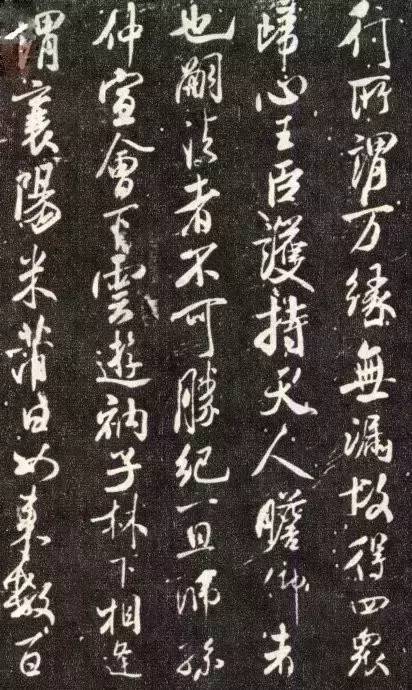 行所謂万緣無漏故得四衆
歸心王臣護持天人瞻仰者
也嗣法者不可勝紀一旦師孫
仲宣會下雲遊衲子林下相逢
謂襄陽米芾曰東數百